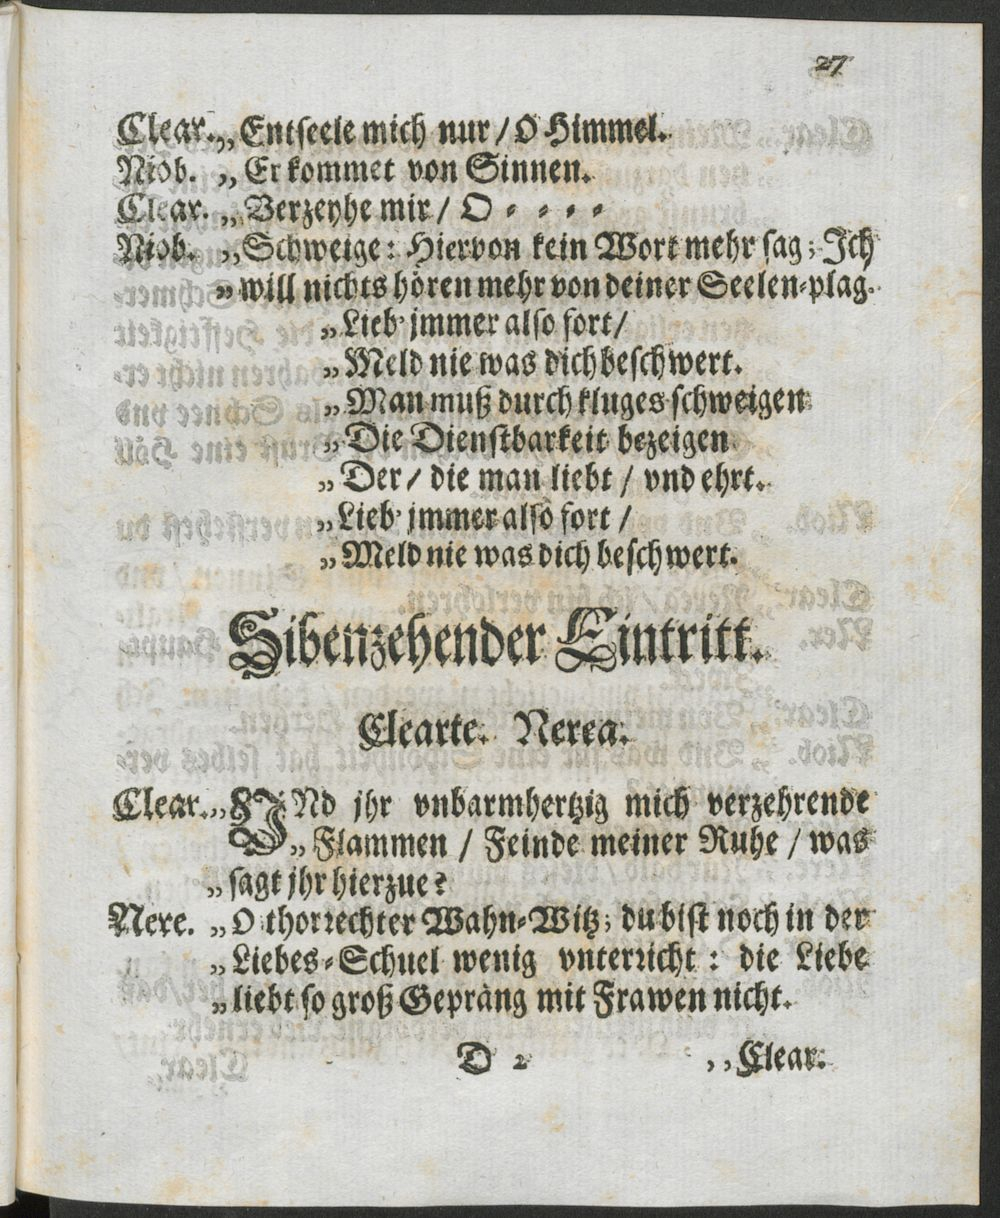 27
Clear. „ Entseele mich nur / O Himmel.
Niob. „ Er kommet von Sinnen.
Clear. „ Verzeyhe mir / O - - - -
Niob. „ Schweige: Hiervon kein Wort mehr sag; Jch
„ will nichts hören mehr von deiner Seelen-plag.
„ Lieb' jmmer also fort /
„ Meld nie was dich beschwert.
„ Man muß durch kluges schweigen
„ Die Dienstbarkeit bezeigen
„ Der / die man liebt / vnd ehrt.
„ Lieb' jmmer also fort /
„ Meld nie was dich beschwert.
Sibenzehender Eintritt.
Clearte. Nerea.
Clear. „ SJNd jhr vnbarmhertzig mich verzehrende
„ Flammen / Feinde meiner Ruhe / was
„ sagt jhr hierzue?
Nere. „ O thorrechter Wahn-Witz; du bist noch in der
„ Liebes-Schuel wenig vnterricht: die Liebe
„ liebt so groß Gepräng mit Frawen nicht.
D 2
„ Clear.